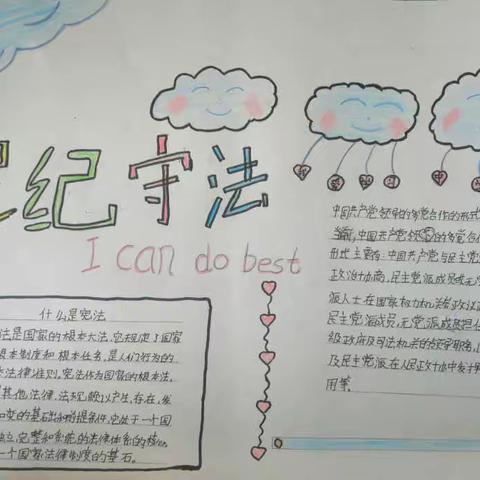 纪守法
I can do best
什么是宪法
法是国家的根本大法,它规定了国家
根本制度和根本任务,是人们行为的
法律准则。宪法作为国家的根本法,
其他法律、法规赖以产生、存在、发
和变的基础和前提条件,它处于一个国
独立、完整和系统的法律体系的核心,
一个国家法律制度的基石。
中国共产党领导的多党合作的形式
当前,中国共产党领导的多党合
形式主要有:中国共产党与民主党
政治协商,民主党派成员或无
派人士在国家权力机关参政议政
民主党派成员、无党派成员担任
级政府及司法机关的领导职务,
及民主党派在人民政协中发
用等。